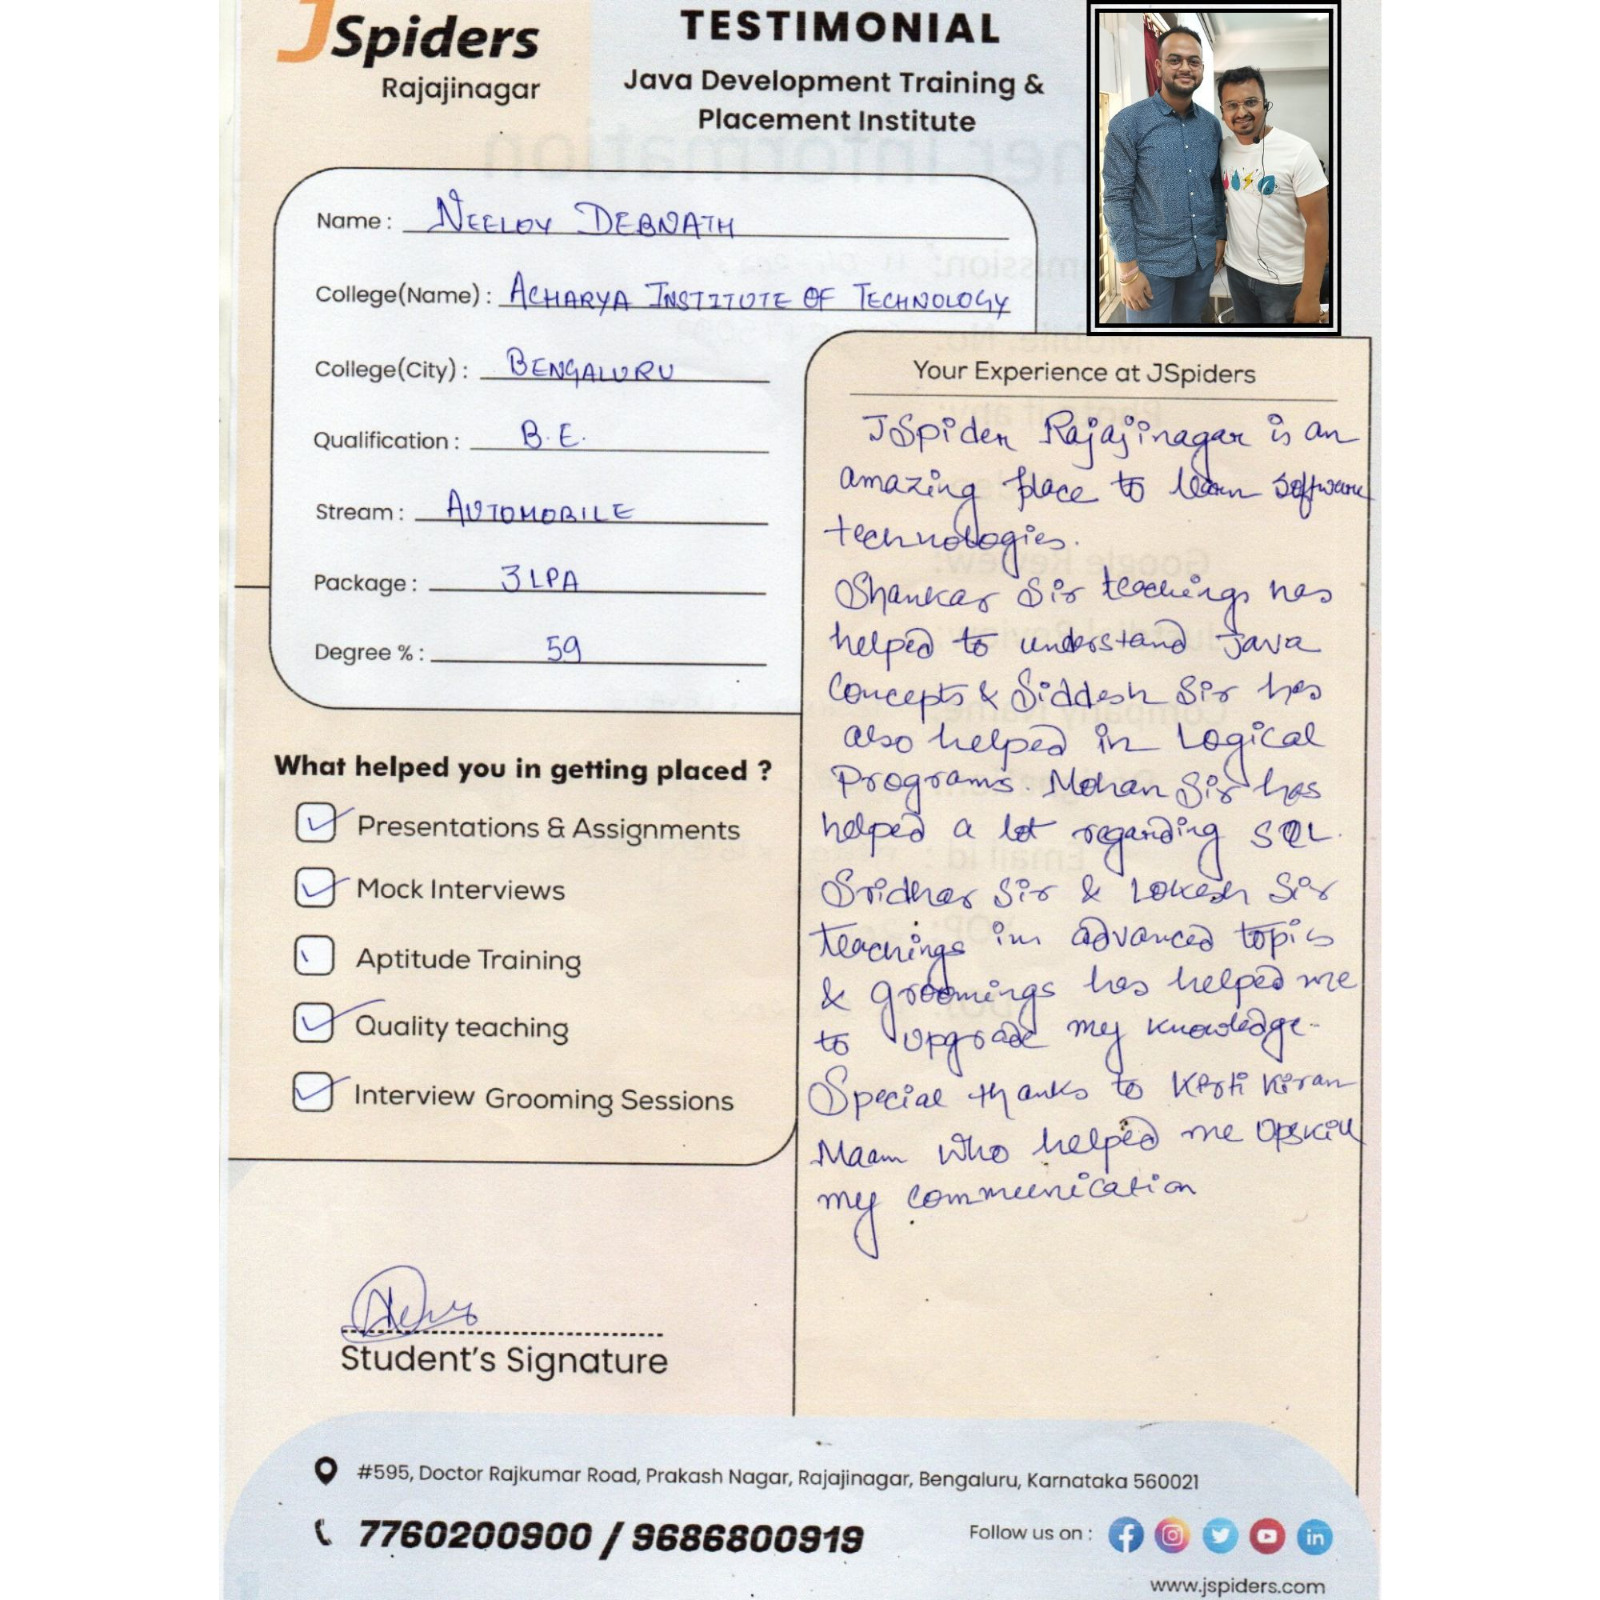 JSpiders
Rajajinagar
TESTIMONIAL
Java Development Training &
Placement Institute
Name : NEELOY DEBNATH
College(Name) : ACHARYA INSTITUTE OF TECHNOLOGY
College(City) : BENGALURU
Qualification : B.E.
Stream : AUTOMOBILE
Package : 3 LPA
Degree % : 59
What helped you in getting placed ?
Presentations & Assignments
Mock Interviews
Aptitude Training
Quality teaching
Interview Grooming Sessions
Student's Signature
Your Experience at JSpiders
JSpider Rajajinagar is an
amazing place to learn software
technologies.
Shankar Sir teachings has
helped to understand Java
Concepts & Siddesh Sir has
also helped in Logical
Programs. Mohan Sir has
helped a lot regarding SQL.
Sridhar Sir & Lokesh Sir
teachings in advanced topics
& groomings has helped me
to upgrade my knowledge.
Special thanks to Kirti Kiran
Maam who helped me Upskill
my communication
#595, Doctor Rajkumar Road, Prakash Nagar, Rajajinagar, Bengaluru, Karnataka 560021
7760200900 / 9686800919
Follow us on :
www.jspiders.com